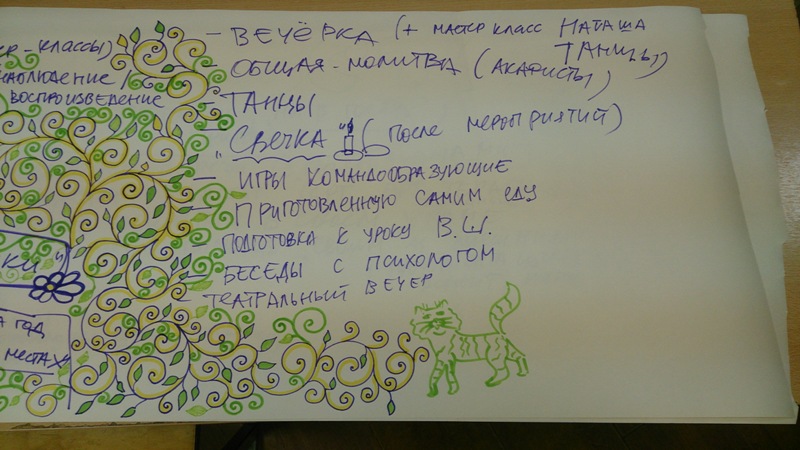 Р-КЛАССЫ)
НАБЛЮДЕНИЕ /
ВОСПРОИЗВЕДЕНИЕ
КИ"
А ГОД
МЕСТАХ"
- ВЕЧЁРКА (+ МАСТЕР КЛАСС НАТАША
ТАНЦЫ)
- ОБЩАЯ МОЛИТВА (АКАФИСТЫ)
- ТАНЦЫ
- "СВЕЧКА" (ПОСЛЕ МЕРОПРИЯТИЙ)
- ИГРЫ КОМАНДООБРАЗУЮЩИЕ
- ПРИГОТОВЛЕННУЮ САМИМ ЕДУ
- ПОДГОТОВКА К УРОКУ В.Ш.
- БЕСЕДЫ С ПСИХОЛОГОМ
- ТЕАТРАЛЬНЫЙ ВЕЧЕР